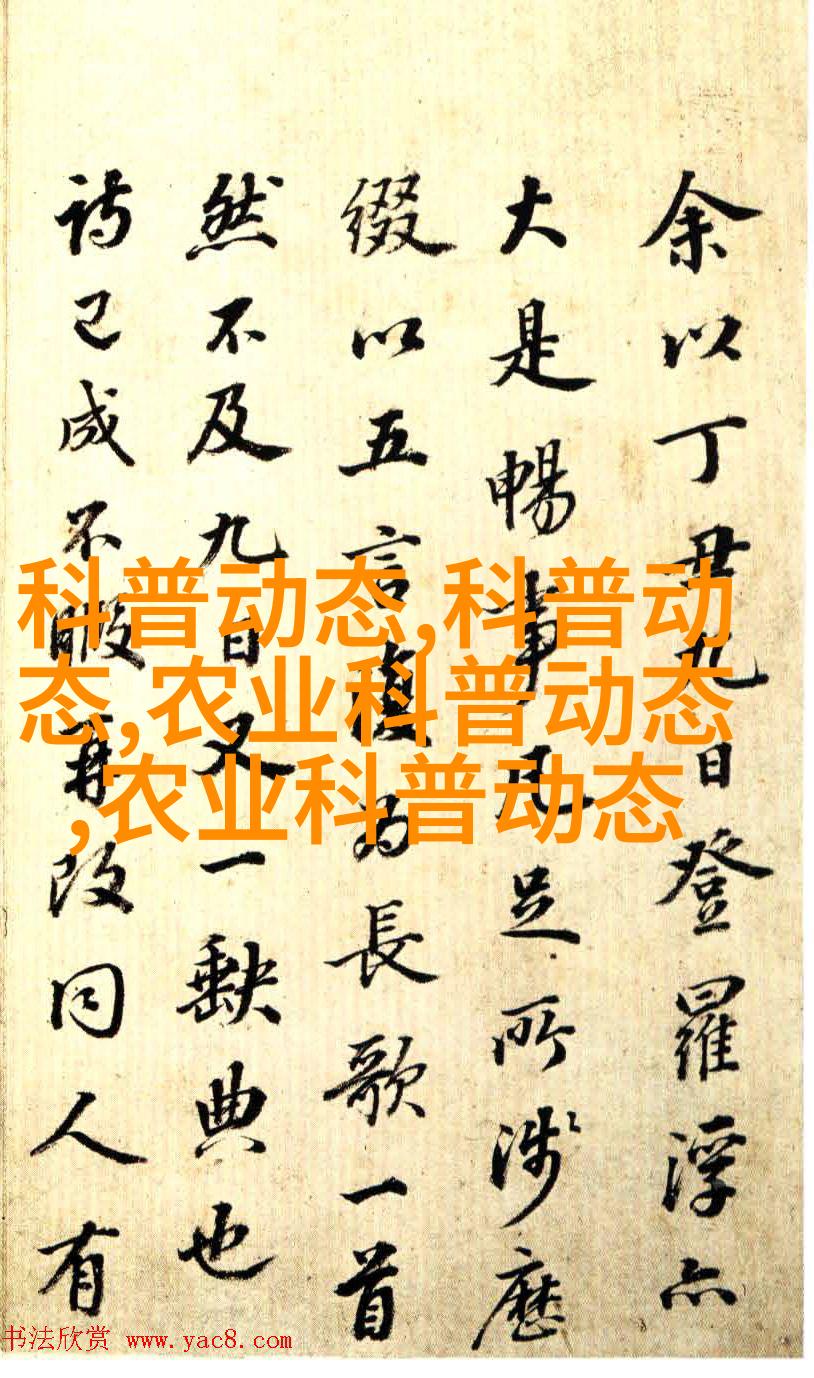 余以丁丑九日登羅浮亦
大是暢事凡足所涉歷
綴以五言復為長歌一首
然不及九日又一缺典也
詩已成不暇再改同人有
科普动态,科普动
态,农业科普动态
,农业科普动态
书法欣赏 www.yac8.com